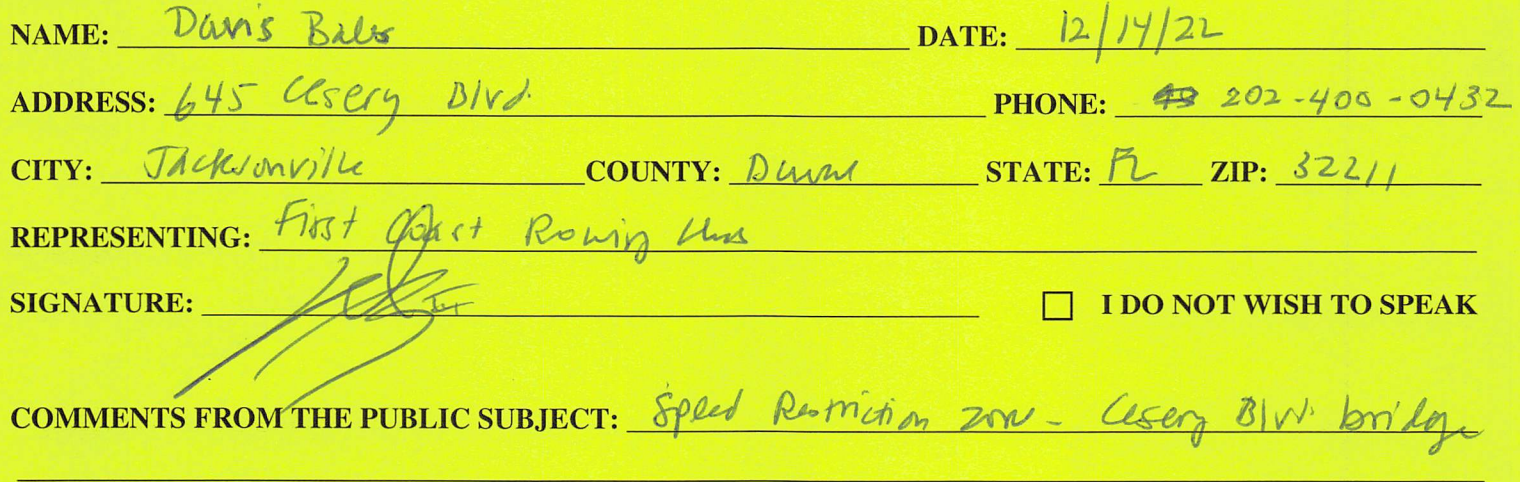 NAME: Davis Bales DATE: 12/14/22
ADDRESS: 645 Cesery Blvd. PHONE: 202-400-0432
CITY: Jacksonville COUNTY: Duval STATE: FL ZIP: 32211
REPRESENTING: First Coast Rowing
SIGNATURE: I DO NOT WISH TO SPEAK
COMMENTS FROM THE PUBLIC SUBJECT: Speed Restriction zone - Cesery Blvd. bridge